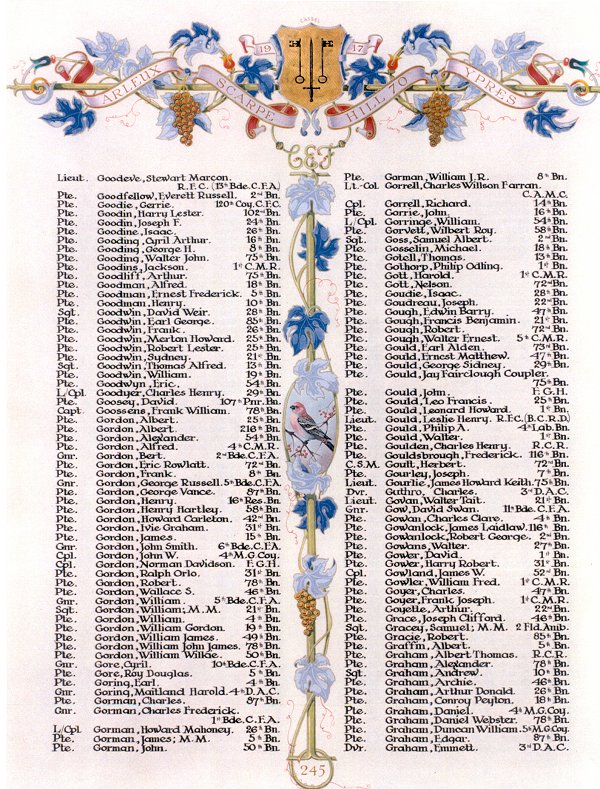 CASSEL
19 17
ARLEUX SCARPE HILL 70 YPRES
CEF
Lieut. Goodeve, Stewart Marcon.
R.F.C. (13th Bde. C.F.A.)
Pte. Goodfellow, Everett Russell. 2nd Bn.
Pte. Goodie, Gerrie. 120th Coy. C.F.C.
Pte. Goodin, Harry Lester. 102nd Bn.
Pte. Goodin, Joseph F. 24th Bn.
Pte. Goodine, Isaac. 26th Bn.
Pte. Gooding, Cyril Arthur. 16th Bn.
Pte. Gooding, George H. 8th Bn.
Pte. Gooding, Walter John. 75th Bn.
Pte. Goodins, Jackson. 1st C.M.R.
Pte. Goodliff, Arthur. 73rd Bn.
Pte. Goodman, Alfred. 18th Bn.
Pte. Goodman, Ernest Frederick. 5th Bn.
Pte. Goodman, Henry. 10th Bn.
Sgt. Goodwin, David Weir. 28th Bn.
Pte. Goodwin, Earl George. 85th Bn.
Pte. Goodwin, Frank. 26th Bn.
Pte. Goodwin, Merton Howard. 25th Bn.
Pte. Goodwin, Robert Lester. 25th Bn.
Pte. Goodwin, Sydney. 21st Bn.
Sgt. Goodwin, Thomas Alfred. 13th Bn.
Pte. Goodwin, William. 19th Bn.
Pte. Goodwyn, Eric. 54th Bn.
L/Cpl. Goodyer, Charles Henry. 29th Bn.
Pte. Goosey, David. 107th Pnr. Bn.
Capt. Goossens, Frank William. 78th Bn.
Pte. Gordon, Albert. 25th Bn.
Pte. Gordon, Albert. 216th Bn.
Pte. Gordon, Alexander. 54th Bn.
Pte. Gordon, Alfred. 4th C.M.R.
Gnr. Gordon, Bert. 2nd Bde. C.F.A.
Pte. Gordon, Eric Rowlatt. 72nd Bn.
Pte. Gordon, Frank. 8th Bn.
Gnr. Gordon, George Russell. 5th Bde. C.F.A.
Pte. Gordon, George Vance. 87th Bn.
Pte. Gordon, Henry. 16th Res. Bn.
Pte. Gordon, Henry Hartley. 58th Bn.
Pte. Gordon, Howard Carleton. 42nd Bn.
Pte. Gordon, Ivie Graham. 31st Bn.
Pte. Gordon, James. 15th Bn.
Gnr. Gordon, John Smith. 6th Bde. C.F.A.
Cpl. Gordon, John W. 4th M.G. Coy.
Cpl. Gordon, Norman Davidson. F.G.H.
Pte. Gordon, Ralph Orlo. 31st Bn.
Pte. Gordon, Robert. 78th Bn.
Pte. Gordon, Wallace S. 46th Bn.
Gnr. Gordon, William. 5th Bde. C.F.A.
Sgt. Gordon, William; M.M. 21st Bn.
Pte. Gordon, William. 4th Bn.
Pte. Gordon, William Gordon. 19th Bn.
Pte. Gordon, William James. 49th Bn.
Pte. Gordon, William John James. 78th Bn.
Pte. Gordon, William Wilkie. 50th Bn.
Gnr. Gore, Cyril. 10th Bde. C.F.A.
Pte. Gore, Roy Douglas. 5th Bn.
Pte. Goring, Earl. 4th Bn.
Gnr. Goring, Maitland Harold. 4th D.A.C.
Pte. Gorman, Charles. 87th Bn.
Gnr. Gorman, Charles Frederick.
1st Bde. C.F.A.
L/Cpl. Gorman, Howard Mahoney. 26th Bn.
Pte. Gorman, James; M.M. 5th Bn.
Pte. Gorman, John. 50th Bn.
Pte. Gorman, William J.R. 8th Bn.
Lt.-Col Gorrell, Charles Willson Farran.
C.A.M.C.
Cpl. Gorrell, Richard. 14th Bn.
Pte. Gorrie, John. 16th Bn.
L/Cpl. Gorringe, William. 54th Bn.
Pte. Gorvett, Wilbert Roy. 58th Bn.
Sgt. Goss, Samuel Albert. 2nd Bn.
Pte. Gosselin, Michael. 18th Bn.
Pte. Gotell, Thomas. 13th Bn.
Pte. Gothorp, Philip Odling. 1st Bn.
Pte. Gott, Harold. 1st C.M.R.
Pte. Gott, Nelson. 72nd Bn.
Pte. Goudie, Isaac. 28th Bn.
Pte. Goudreau, Joseph. 22nd Bn.
Pte. Gough, Edwin Barry. 47th Bn.
Pte. Gough, Francis Benjamin. 21st Bn.
Pte. Gough, Robert. 72nd Bn.
Pte. Gough, Walter Ernest. 5th C.M.R.
Pte. Gould, Earl Alden. 73rd Bn.
Pte. Gould, Ernest Matthew. 47th Bn.
Pte. Gould, George Sidney. 29th Bn.
Pte. Gould, Jay Fairclough Coupler.
75th Bn.
Pte. Gould, John. F.G.H.
Pte. Gould, Leo Francis. 25th Bn.
Pte. Gould, Leonard Howard. 1st Bn.
Lieut. Gould, Leslie Henry. R.F.C. (B.C.R.D)
Pte. Gould, Philip A. 4th Lab. Bn.
Pte. Gould, Walter. 1st Bn.
Pte. Goulden, Charles Henry. R.C.R.
Pte. Gouldsbrough, Frederick. 116th Bn.
C.S.M. Goult, Herbert. 72nd Bn.
Pte. Gourley, Joseph. 7th Bn.
Lieut. Gourlie, James Howard Keith. 75th Bn.
Dvr. Guthro, Charles. 3rd D.A.C.
Lieut. Govan, Walter Tait. 21st Bn.
Gnr. Gow, David Swan. 11th Bde. C.F.A.
Pte. Gowan, Charles Clare. 4th Bn.
Pte. Gowanlock, James Laidlaw. 116th Bn.
Pte. Gowanlock, Robert George. 2nd Bn.
Pte. Gowans, Walter. 27th Bn.
Pte. Gower, David. 1st Bn.
Pte. Gower, Harry Robert. 31st Bn.
Cpl. Gowland, James W. 52nd Bn.
Pte. Gowler, William Fred. 1st C.M.R.
Pte. Goyer, Charles. 47th Bn.
Pte. Goyer, Frank Joseph. 1st C.M.R.
Pte. Goyette, Arthur. 22nd Bn.
Pte. Grace, Joseph Clifford. 46th Bn.
Sgt. Gracey, Samuel; M.M. 2 Fld. Amb.
Pte. Gracie, Robert. 85th Bn.
Pte. Graffin, Albert. 5th Bn.
Pte. Graham, Albert Thomas. R.C.R.
Pte. Graham, Alexander. 78th Bn.
Sgt. Graham, Andrew. 10th Bn.
Pte. Graham, Archie. 46th Bn.
Pte. Graham, Arthur Donald. 26th Bn.
Pte. Graham, Conroy Peyton. 18th Bn.
Pte. Graham, Daniel. 4th M.G. Coy.
Pte. Graham, Daniel Webster. 78th Bn.
Pte. Graham, Duncan William. 5th M.G. Coy.
Pte. Graham, Edgar. 87th Bn.
Dvr. Graham, Emmett. 3rd D.A.C.
245